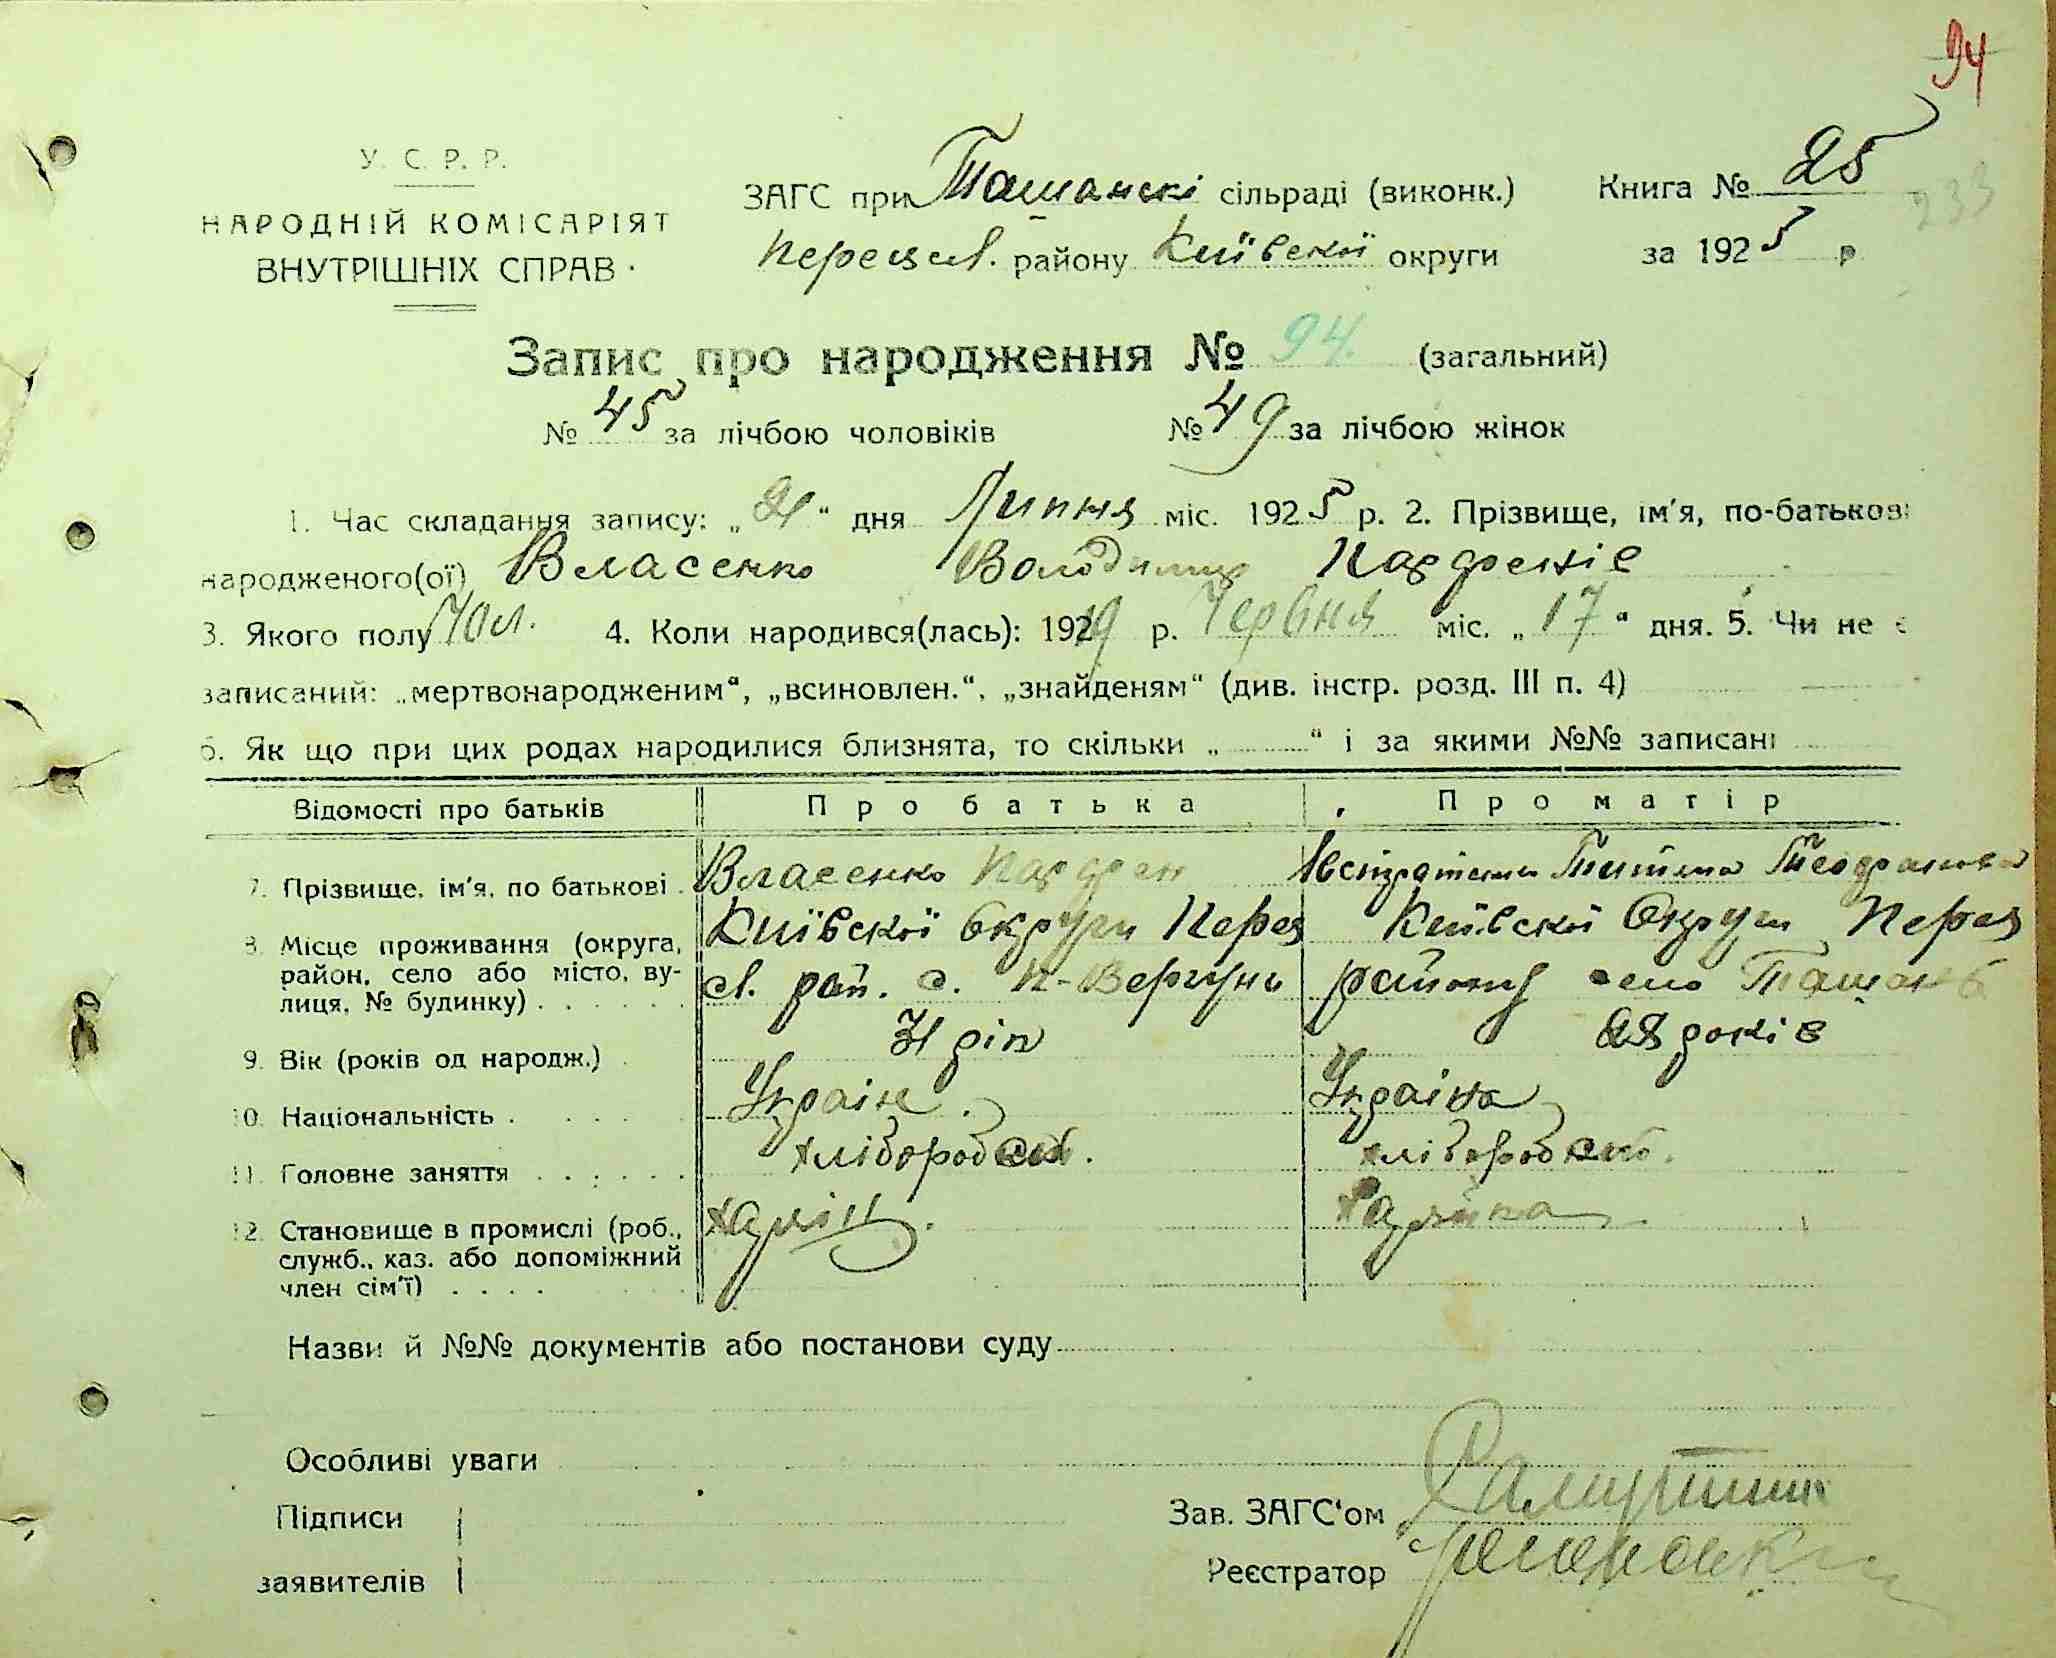 94
У. С. Р. Р.
НАРОДНІЙ КОМІСАРІЯТ
ВНУТРІШНІХ СПРАВ
ЗАГС при Ташанскі сільраді (виконк.) Книга № 25
233
Переясл. району Київскої округи за 1925 р
Запис про народження № 94. (загальний)
№ 45 за лічбою чоловіків № 49 за лічбою жінок
1. Час складання запису: „21“ дня Липня міс. 1925 р. 2. Прізвище, ім'я, по-батькові
народженого(ої) Власенко Володимир Парфеніє
3. Якого полу Чол. 4. Коли народився(лась): 1919 р. Червня міс. „17“ дня. 5. Чи не є
записаний: „мертвонародженим“, „всиновлен.“, „знайденям“ (див. інстр. розд. III п. 4)
6. Як що при цих родах народилися близнята, то скільки „ “ і за якими №№ записані
Відомості про батьків Про батька Про матір
7. Прізвище, ім'я, по батькові Власенко Парфен
8. Місце проживання (округа, район, село або місто, вулиця, № будинку) Київскої Округи Перея Київскої Округи Перея
сл. рай. с. П-Вергуни району село Ташань
9. Вік (років од народж.) 31 рік 28 років
10. Національність Україн. Україна
11. Головне заняття хлібороб хлібороб
12. Становище в промислі (роб., служб., хаз. або допоміжний член сім'ї) Хазяїн. Хазяйка
Назви й №№ документів або постанови суду
Особливі уваги
Підписи
заявителів
Зав. ЗАГС'ом
Реєстратор